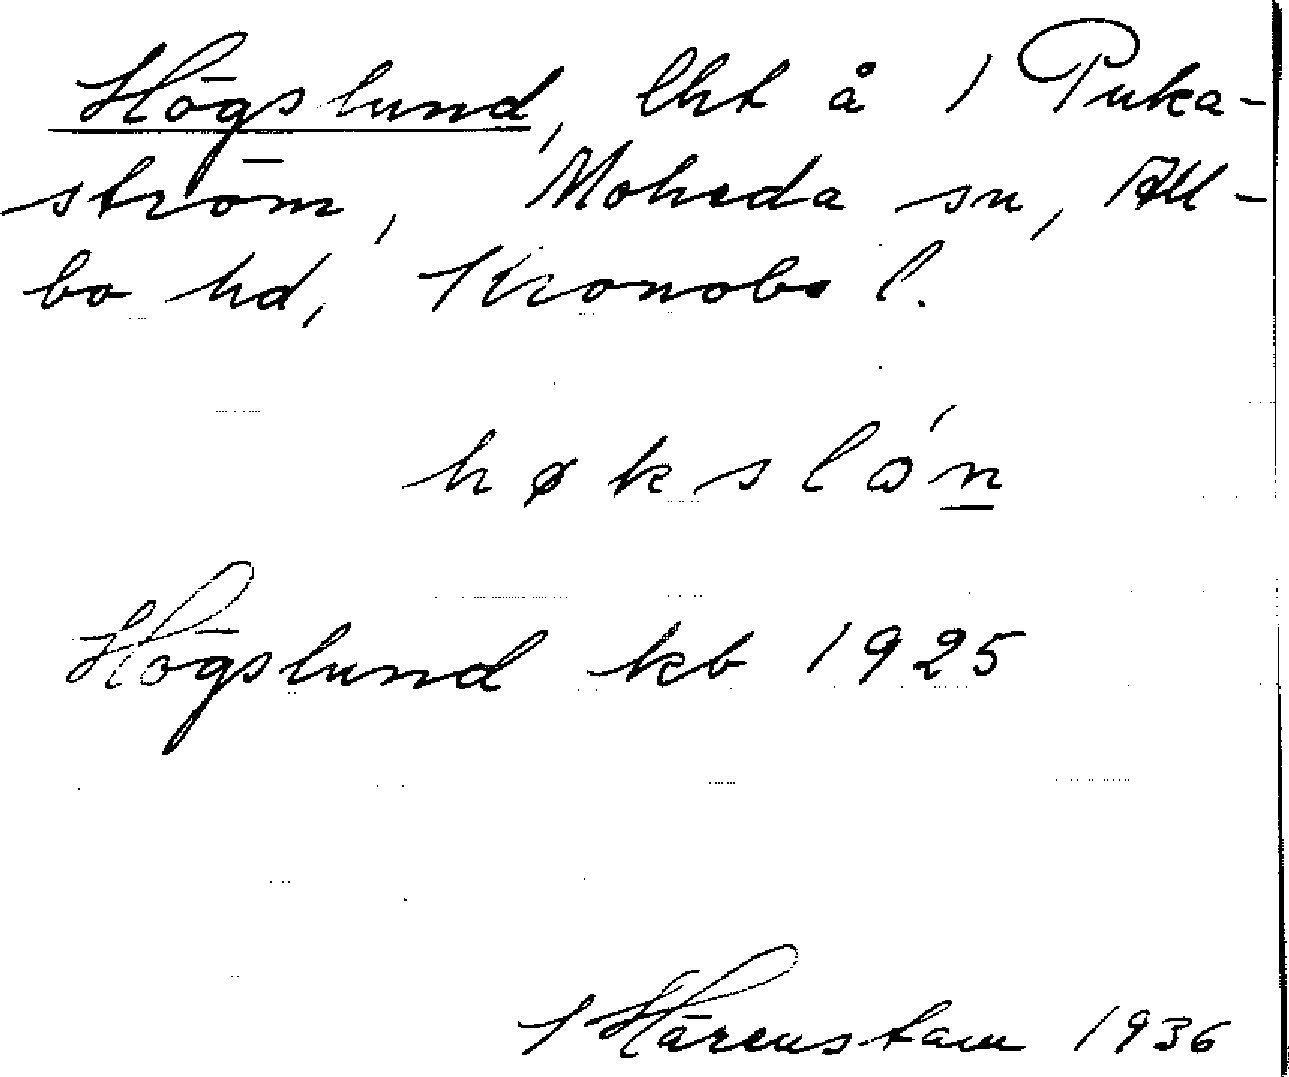 Högslund, lht å 1 Puka-
ström, Moheda sn, All-
bo hd, Kronobs l.
høkslón
Högslund kb 1925
Härenstam 1936